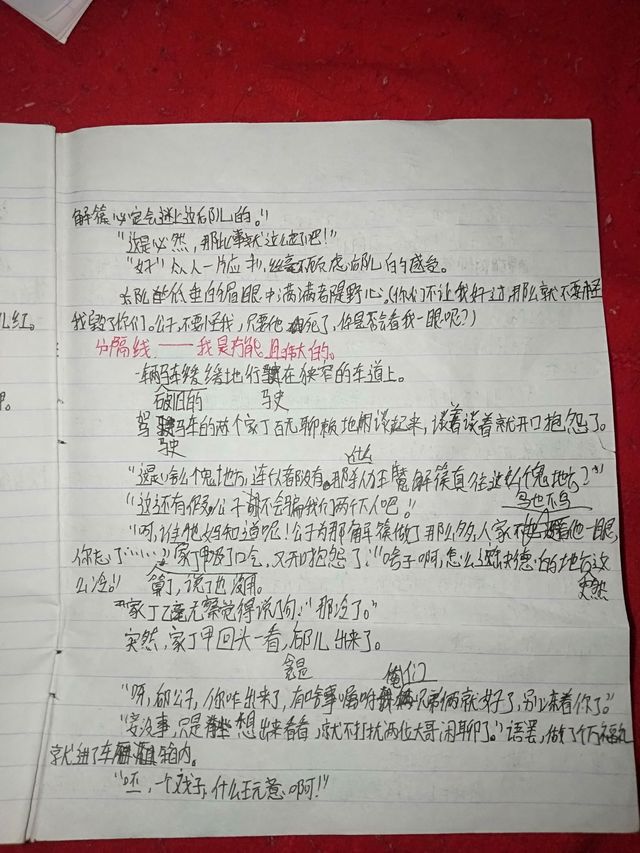 解篠必定会迷上这郁儿的。”
“这是必然，那此事就这么定了吧！”
“好”众人一片应，丝毫不顾虑郁儿的感受。
低垂的眉眼中满满者隐野心。（你们不让我好过，那么就不要怪
儿红。
我毁了你们。公子，不要怪我，只要他死了，你是否会看我一眼呢？）
分隔线——我是万能且伟大的。
一辆马车缓缓地行驶在狭窄的车道上。
破旧的 驶
驾马车的两个家丁百无聊板地闲谈起来，谈着谈着就开口抱怨了。
驶
什么
“这是啥么个鬼地方，连仆者都没有。那杀人王魔解篠真往这么个鬼地方？”
“这还有假，公子不会骗我们两个下人吧。” 鸟也不鸟
“呵，谁他妈知道呢！公子为那解篠做了那么多，人家不他一眼，
你忘了……”家丁甲吸了口气，又开口抱怨了：“啥子啊，怎么这缺德的地方这
么冷。” 算了，说了也没用。 突然
家丁乙毫无察觉得说了句：“那冷了。”
突然，家丁甲回头一看，郁儿出来了。
竟是 俺们
“呀，郁公子，你咋出来了，有啥事嘱咐兄弟俩就好了，别冻着你了。”
“没事，只是想出来看看，就不打扰两位大哥闲聊了。”语罢，做了个万福礼
就进了车箱内。
“呸，一个戏子，什么玩意啊！”